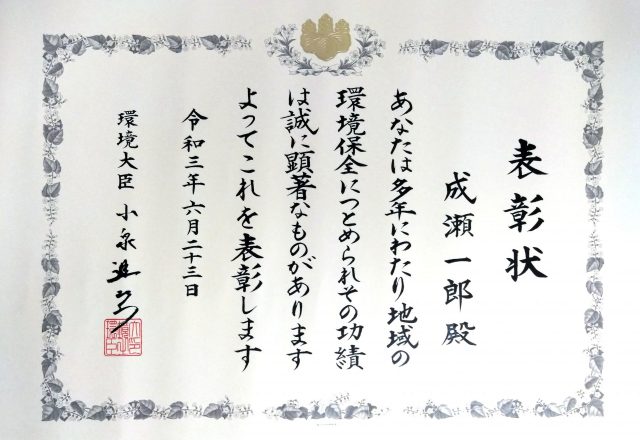 表彰状
成瀬一郎殿
あなたは多年にわたり地域の
環境保全につとめられその功績
は誠に顕著なものがあります
よってこれを表彰します
令和三年六月二十三日
環境大臣 小泉進次郎